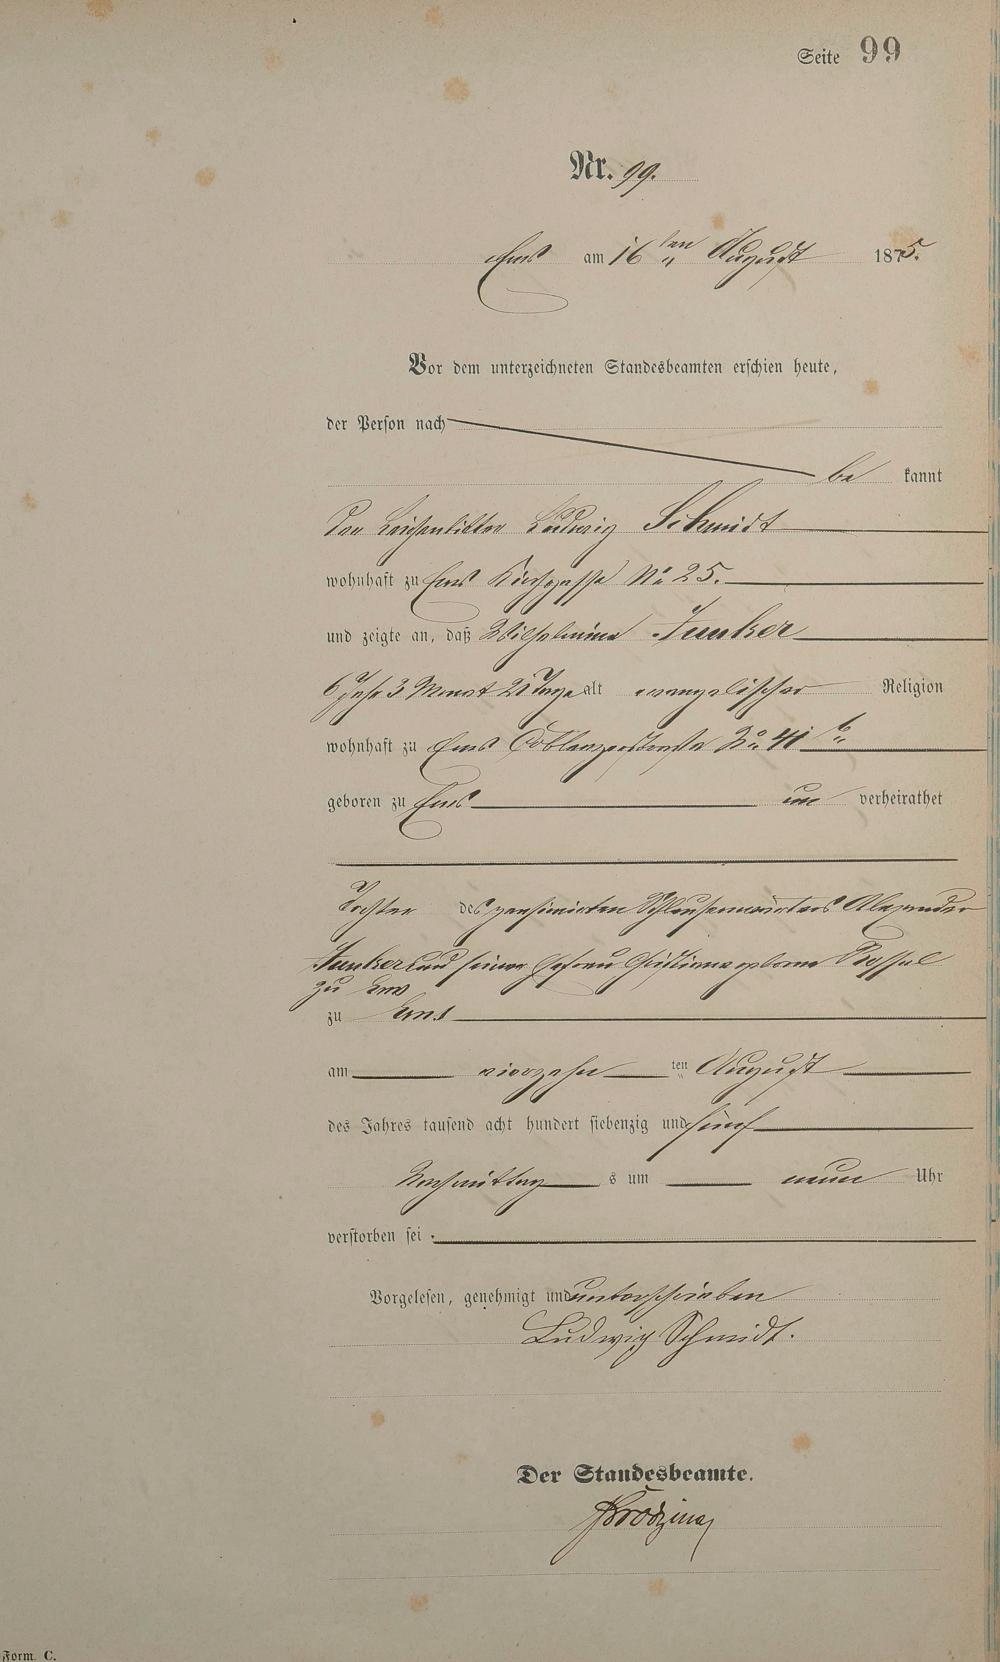 Seite 99
Nr. 99.
Ems am 16ten August 1875.
Vor dem unterzeichneten Standesbeamten erschien heute,
der Person nach
be kannt
der Leichenbitter Ludwig Schmidt
wohnhaft zu Ems Kirchgasse No 25.
und zeigte an, daß Wilhelmine Junker
6 Jahr 3 Monat Tage alt evangelischer Religion
wohnhaft zu Ems Coblenzerstraße No 41 b
geboren zu Ems un verheirathet
Tochter des pensionirten Schleusenwärters Alexander
Junker und seiner Ehefrau Christiane geborne
zu Ems
zu Ems
am vierzehn ten August
des Jahres tausend acht hundert siebenzig und fünf
Nachmittag s um neun Uhr
verstorben sei.
Vorgelesen, genehmigt und unterschrieben
Ludwig Schmidt.
Der Standesbeamte.
Form. C.